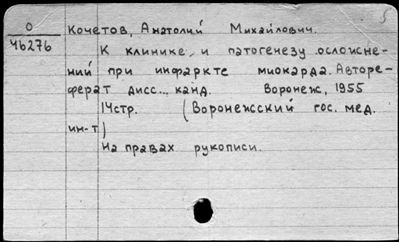 О
46276
Кочетов, Анатолий Михайлович.
К клинике и патогенезу осложне-
ний при инфаркте миокарда. Авторе-
ферат дисс... канд. Воронеж, 1955
14стр. (Воронежский гос. мед.
ин-т)
На правах рукописи.